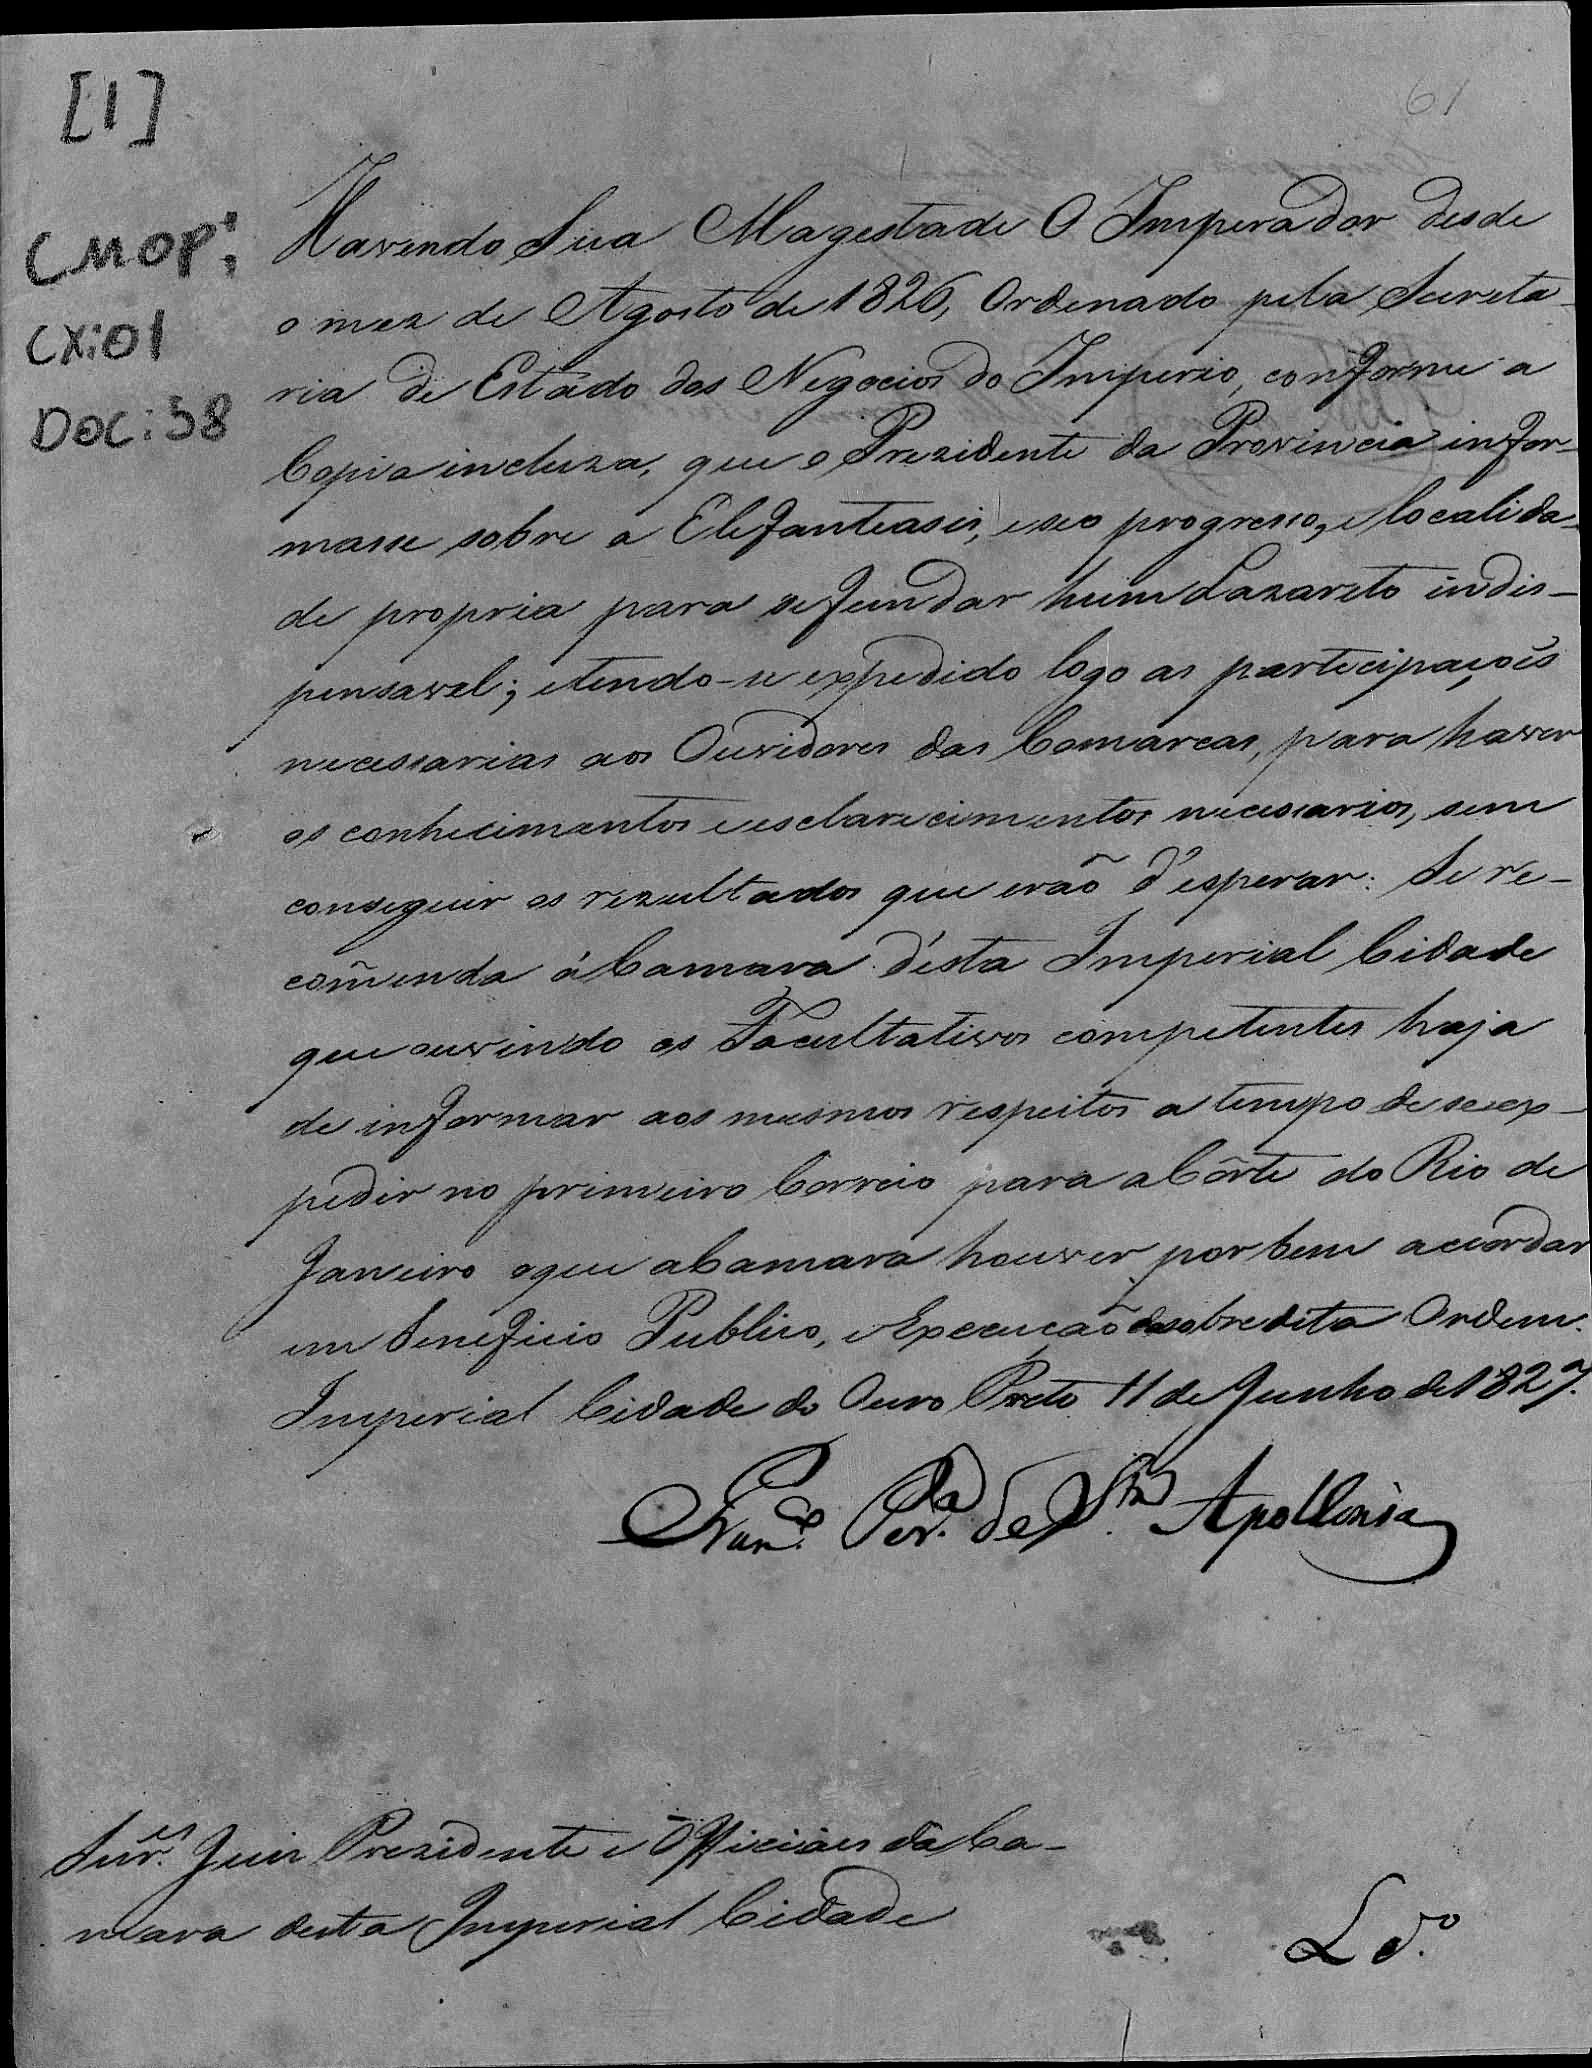 [1]
61
CMOP:
CX:01
DOC:58
Havendo Sua Magestade O Imperador desde
o mez de Agosto de 1826, Ordenado pela Secreta-
ria de Estado dos Negocios do Imperio, conforme a
Copia incluza, que o Prezidente da Provincia infor-
masse sobre a Elefanteasis, e seo progresso, e localida-
de propria para se fundar hum Lazareto indis-
pensavel; e tendo-se expedido logo as partecipaçoẽs
necessarias aos Ouvidores das Comarcas, para haver
os conhecimentos e esclarecimentos necessarios, sem
conseguir os rezultados que eraõ d'esperar: Se re-
com̃enda á Camara d'esta Imperial Cidade
que ouvindo os Facultativos competentes haja
de informar aos mesmos respeitos a tempo de se ex-
pedir no primeiro Correio para a Côrte do Rio de
Janeiro o que a Camara houver por bem accordar
em beneficio Publico, e Execuçaõ da sobredita Ordem.
Imperial Cidade do Ouro Preto 11 de Junho de 1827.
Fran.co Per.a de S.ta Apollonia
Snr.es Juiz Prezidente e Officiaes da Ca-
mara desta Imperial Cidade
L.do